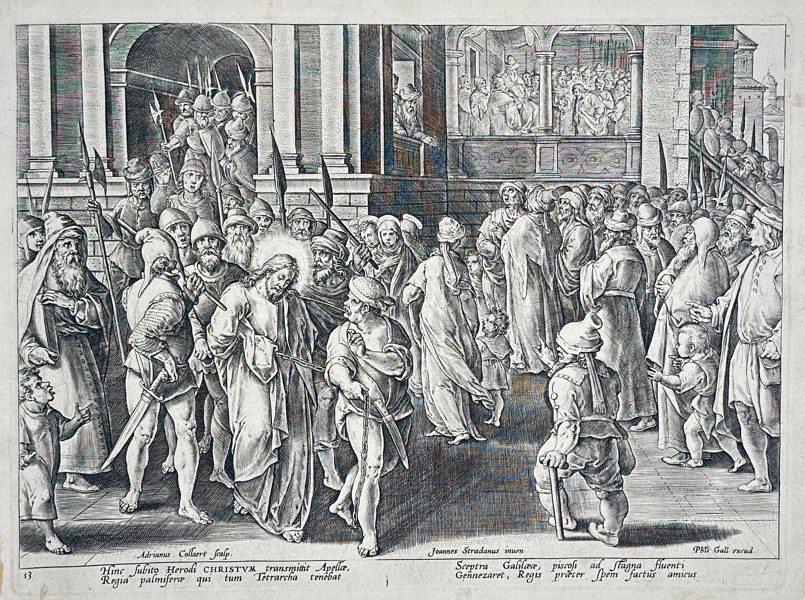 Adrianus Collaert sculp.
Joannes Stradanus inuen
Phls Gall excud
13
Hinc subito Herodi CHRISTVM transmittit Apellæ,
Regia palmiferæ qui tum Tetrarcha tenebat
Sceptra Galilææ, piscosi ad stagna fluenti
Gennezaret, Regis præter spem factus amicus